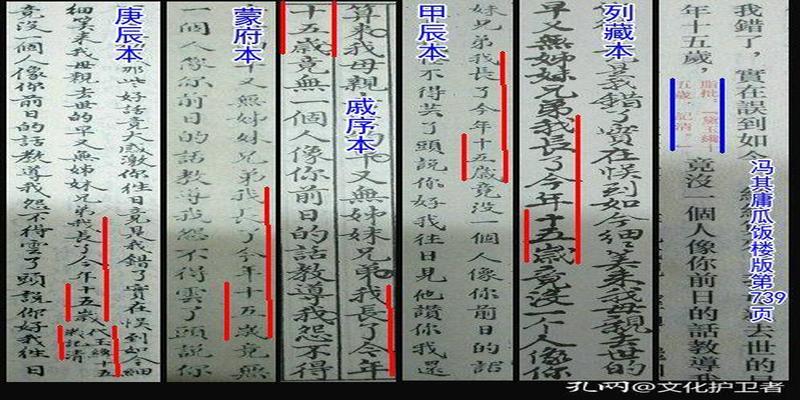 我錯了，實在誤到如今
去世的
年十五歲，
脂批：黛玉纔十
五歲，記清。
竟沒一個人像你前日的話教導我
冯其庸瓜饭楼版第739页
列藏本
我錯了實在悮到如今細算来我母親去世的
早又無姊妹兄弟我長了今年十五歲竟没一个人像你
甲辰本
妹兄弟我長了今年十五歲竟没一個人像你前日的話
不得芸了頭說你好我往日見他讚你我還
戚序本
算來我母親
又無姊妹兄弟我長了今年
十五歲竟無一個人像你前日的話教導我怨不得
蒙府本
又無姊妹兄弟我長了今年十五歲竟無
一個人像你前日的話教導我怨不得雲了頭說你
庚辰本
那些好話竟大感激你往日竟是我錯了實在悮到如今細
算來我母親去世的早又無姊妹兄弟我長了今年十五歲
代玉纔十五
歲記清
竟没一個人像你前日的話教導我怨不得雲了頭說你好我往日
孔网@文化护卫者